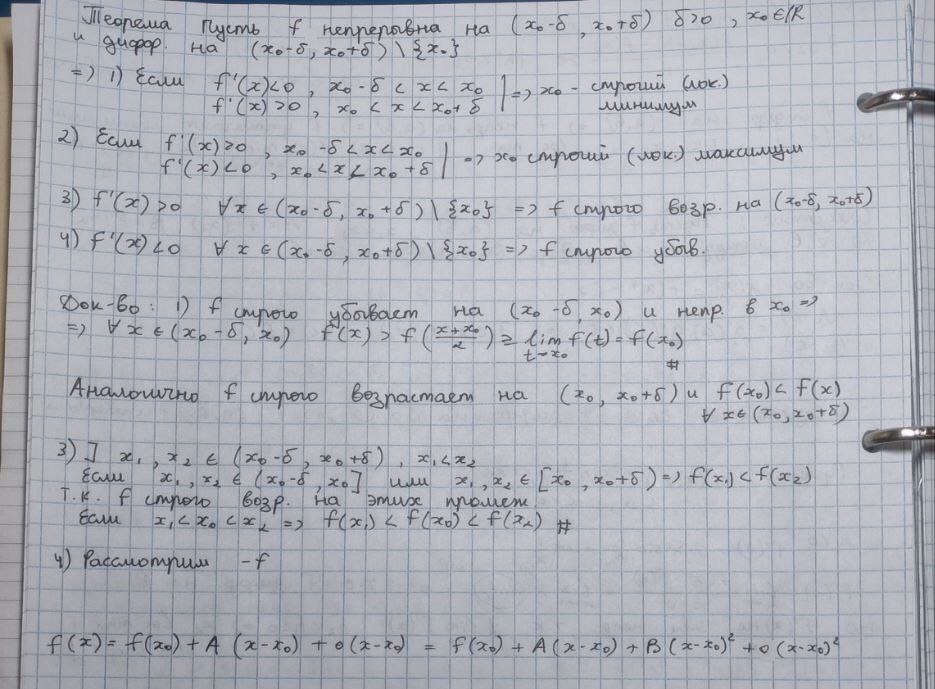 Теорема Пусть f непрерывна на (x₀-δ, x₀+δ) δ>0, x₀∈ℝ
и диффр. на (x₀-δ, x₀+δ) \ {x₀}
=> 1) Если f'(x)<0, x₀-δ < x < x₀ | => x₀ - строгий (лок.)
f'(x)>0, x₀ < x < x₀+δ | минимум
2) Если f'(x)>0, x₀-δ<x<x₀ | => x₀ строгий (лок.) максимум
f'(x)<0, x₀<x<x₀+δ |
3) f'(x)>0 ∀x∈(x₀-δ, x₀+δ) \ {x₀} => f строго возр. на (x₀-δ, x₀+δ)
4) f'(x)<0 ∀x∈(x₀-δ, x₀+δ) \ {x₀} => f строго убыв.
Док-во: 1) f строго убывает на (x₀-δ, x₀) и непр. в x₀ =>
=> ∀x∈(x₀-δ, x₀) f(x) > f((x+x₀)/2) ≥ lim t→x₀ f(t) = f(x₀)
#
Аналогично f строго возрастает на (x₀, x₀+δ) и f(x₀) < f(x)
∀x∈(x₀, x₀+δ)
3) ] x₁, x₂ ∈ (x₀-δ, x₀+δ), x₁<x₂
Если x₁, x₂ ∈ (x₀-δ, x₀] или x₁, x₂ ∈ [x₀, x₀+δ) => f(x₁) < f(x₂)
Т.к. f строго возр. на этих промеж.
Если x₁<x₀<x₂ => f(x₁) < f(x₀) < f(x₂) #
4) Рассмотрим -f
f(x) = f(x₀) + A (x-x₀) + o(x-x₀) = f(x₀) + A(x-x₀) + B(x-x₀)² + o(x-x₀)²